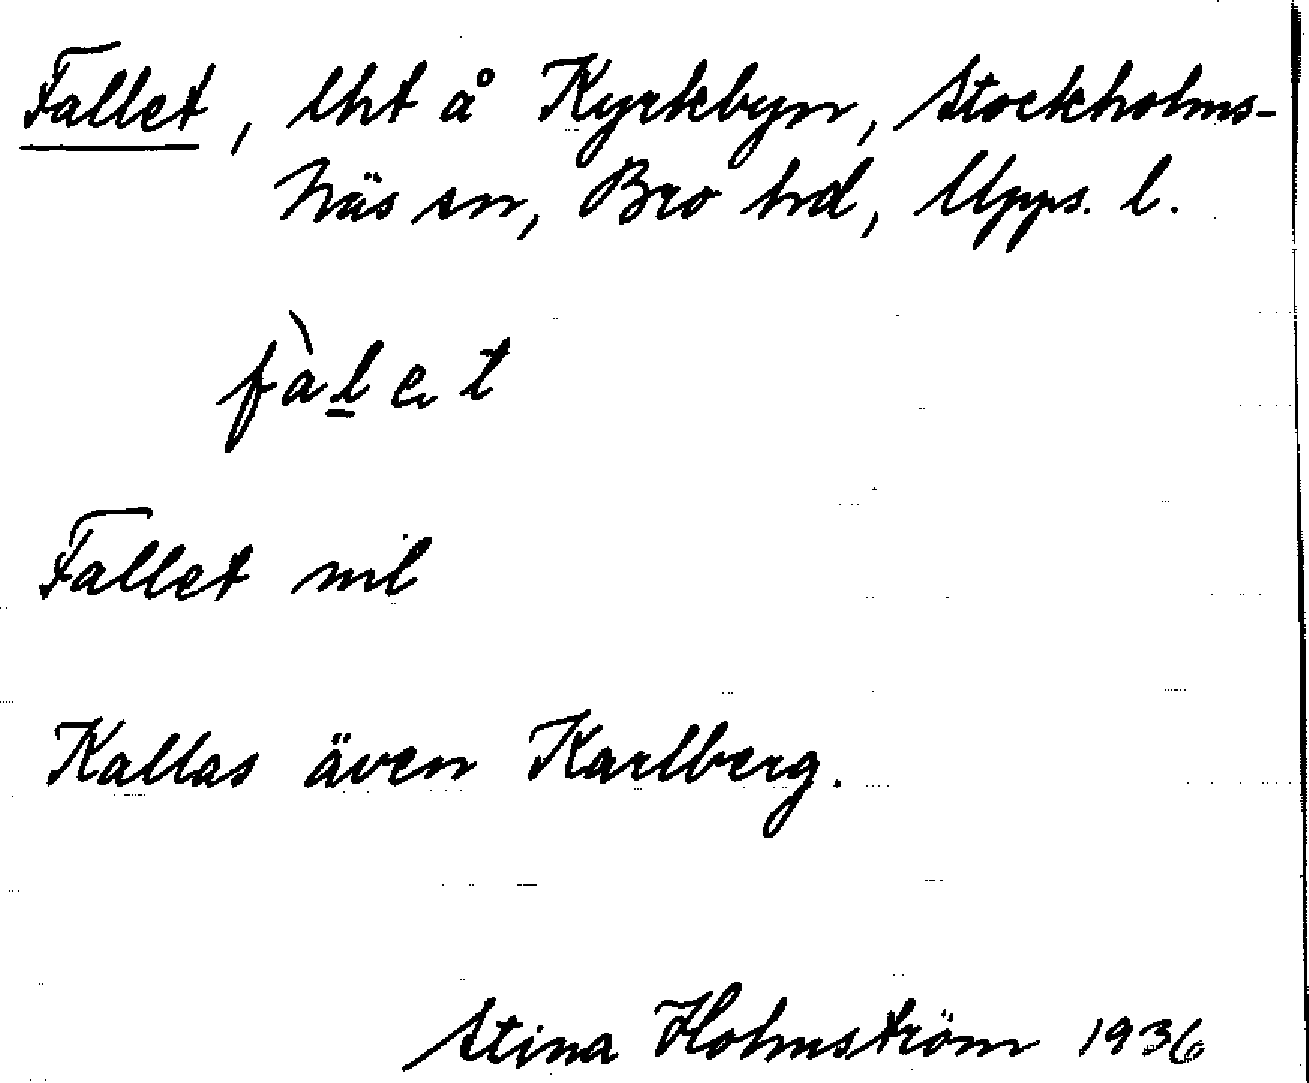 Fallet, lht å Kyrkbyn, Stockholms-
Näs sn, Bro hd, Upps. l.
fàl̲et
Fallet mil
Kallas även Karlberg.
Stina Holmström 1936